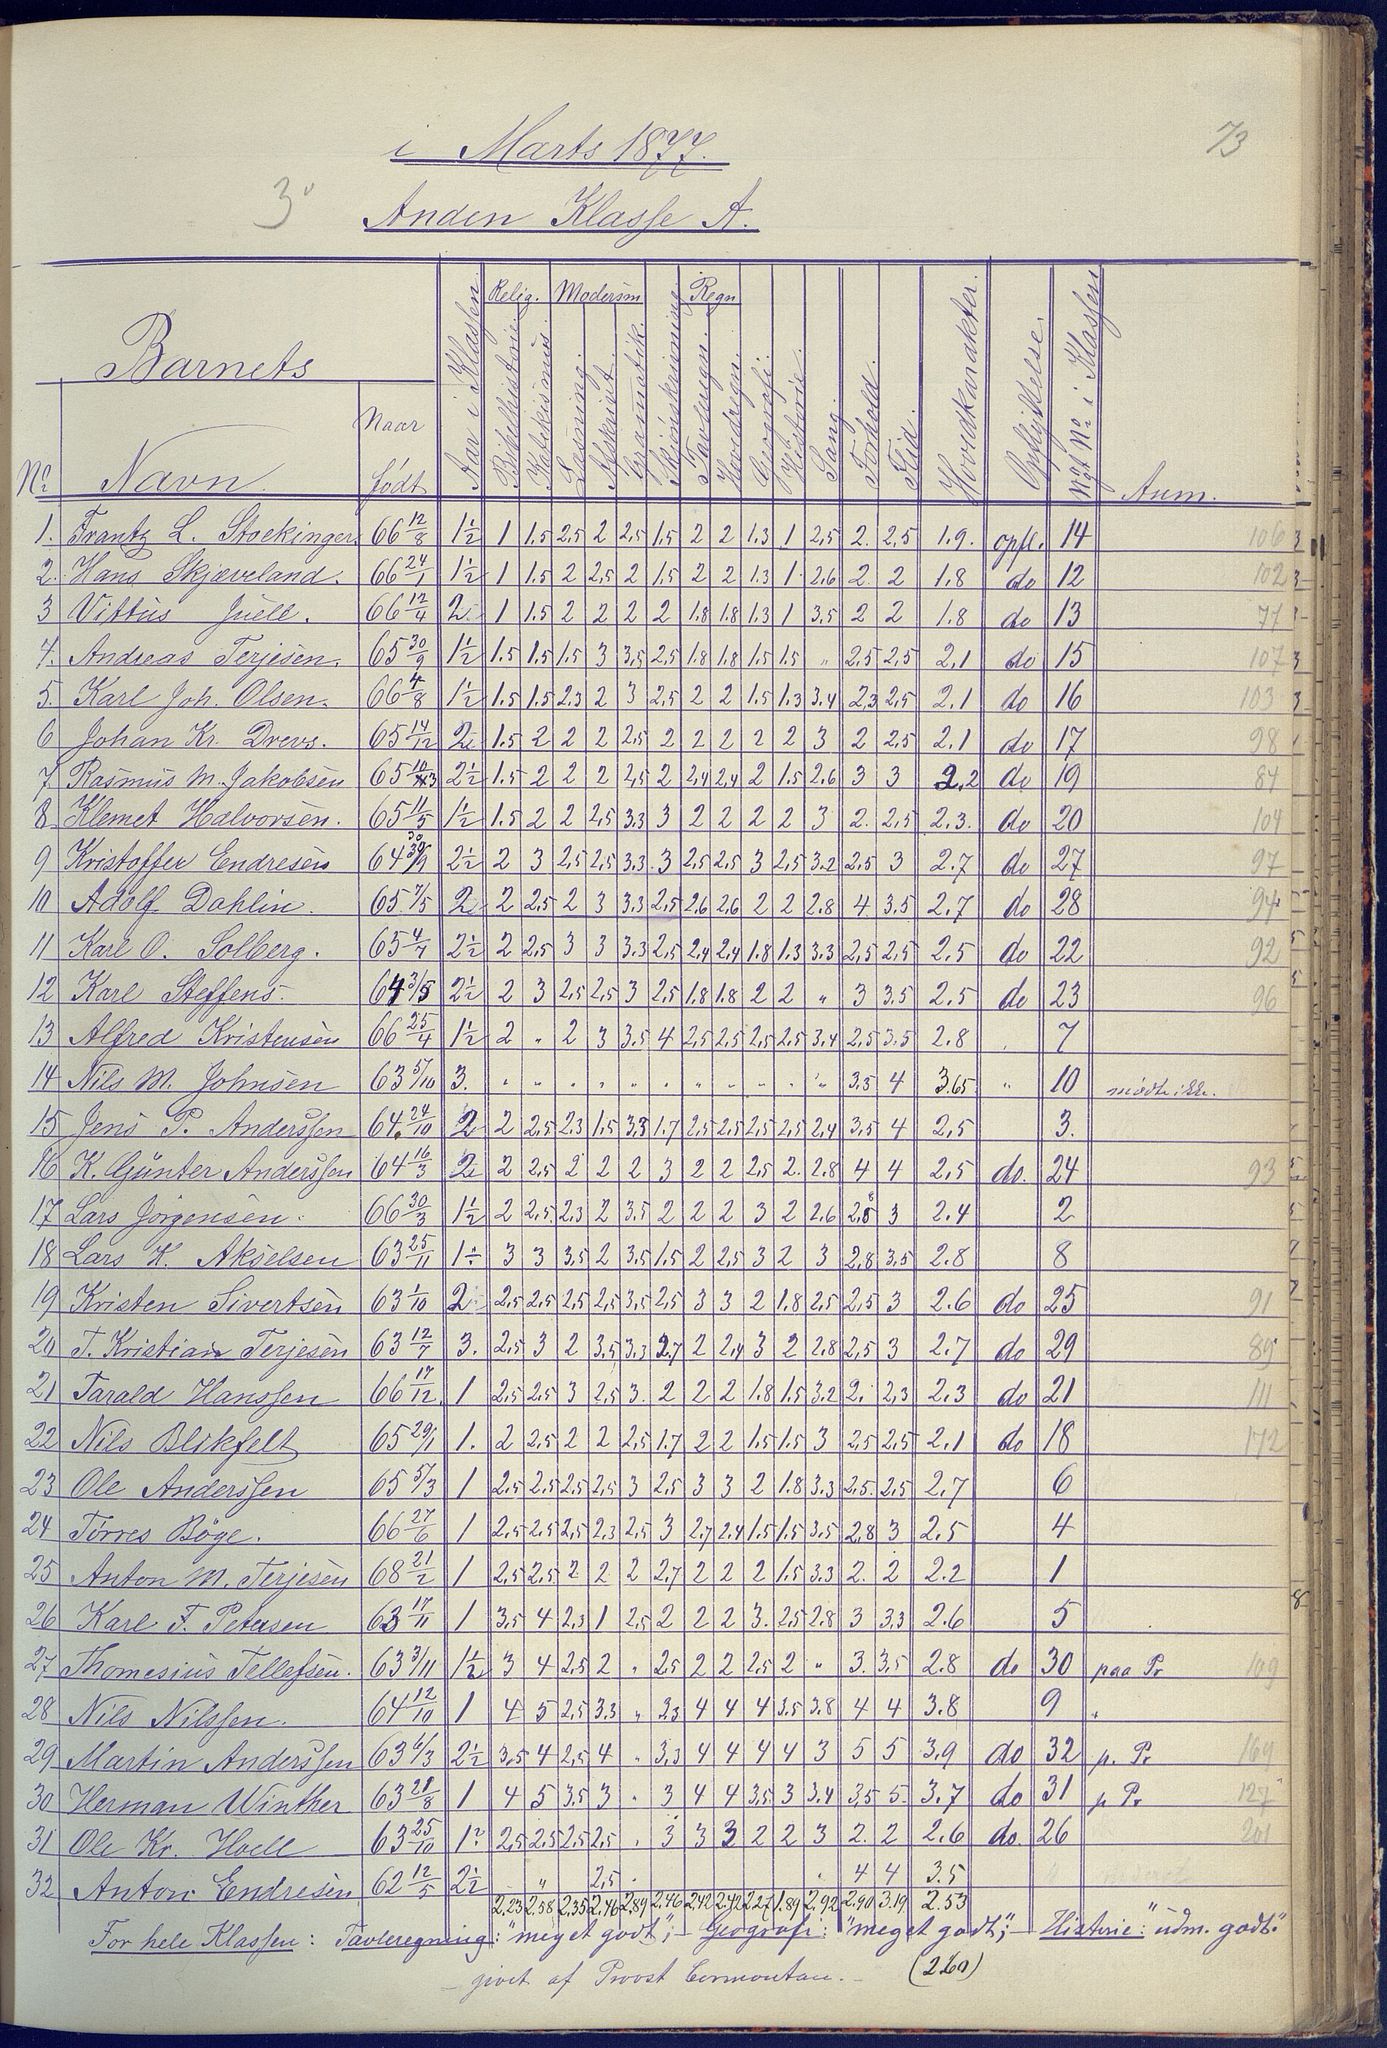 73
i Marts 1877.
3
Anden Klasse A.
Barnets
Nº Navn. Naar født Aar i Klassen. Relig. Bibelhistorie. Katekismus. Modersm Læsning. Afskrivt. Gramatik. Skjönskrivning Regn Tavleregn. Hovedregn. Geografi. Historie. Sang. Forhold. Flid. Hovedkarakter. Opflyttelse. Nyt Nº i Klassen Anm.
1. Frantz L. Stockinger. 66 12/8 1½ 1 1.5 2,5 2 2,5 1.5 2 2 1.3 1 2,5 2. 2,5 1.9. opfl. 14 106
2. Hans Skjæveland. 66 24/1 1½ 1 1.5 2 2,5 2 1.5 2 2 1.3 1. 2.6 2. 2 1.8 do 12 102
3 Vittus Juell. 66 12/4 2. 1 1.5 2 2 2 2 1.8 1.8 1.3 1 3,5 2 2 1.8 do 13 77
4. Andreas Terjesen. 65 30/9 1½ 1.5 1.5 1.5 3 3,5 2,5 1.8 1.8 1.5 1.5 " 2,5 2,5 2,1 do 15 107
5. Karl Joh. Olsen. 66 4/8 1½ 1.5 1.5 2.3 2 3 2,5 2 2 1.5 1.3 3.4 2,3 2,5 2.1 do 16 103
6 Johan Kr. Drevs. 65 14/12 2 1.5 2 2 2 2.5 2 2 2 2 2 3 2 2,5 2.1 do 17 98
7 Rasmus M. Jakobsen 65 10/3 2½ 1.5 2 2 2 2,5 2 2,4 2,4 2 1.5 2.6 3 3 2,2 do 19 84
8 Klemet Halvorsen. 65 11/5 1½ 1.5 2 2 2,5 3.3 3 2 2 2 2 3 2. 2,5 2.3. do 20 104
9 Kristoffer Endresen 64 30/9 2½ 2 3 2,5 2,5 3.3 3 2,5 2,5 3 2,5 3.2 2,5 3 2.7 do 27 97
10 Adolf Dahlin. 65 7/5 2 2 2,5 2 3 3.3 2,5 2.6 2.6 2 2 2.8 4 3.5 2.7 do 28 94
11 Karl O. Solberg. 65 4/7 2½ 2 2,5 3 3 3.3 2,5 2,4 2,4 1.8 1.3 3.3 2,5 2,5 2.5 do 22 92
12 Karl Steffens. 64 3/5 2½ 2 3 2,5 2,5 3 2,5 1.8 1.8 2 2 " 3 3.5 2.5 do 23 96
13 Alfred Kristensen 66 25/4 1½ 2 " 2 3 3,5 4 2,5 2,5 2,5 2,5 3,4 2,5 3.5 2.8 . 7
14 Nils M. Johnsen 63 5/10 3. " " " " " " " " " " " 3,5 4 3.65 " 10 mödte ikke.
15 Jens P. Anderssen 64 24/10 2 2 2,5 2,3 1,5 3,3 1.7 2,5 2,5 2,5 2,5 2,4 3,5 4 2,5 3.
16 K. Günter Anderssen 64 16/3 2 2 2,5 2 2 2 3 2 2 2,5 2. 2.8 4 4 2,5 do. 24 93
17 Lars Jörgensen. 66 30/3 1½ 2 2,5 2.3 2 3.5 2 2 2 3 2 2.6 2,8 3 2.4 2
18 Lars K. Akselsen 63 25/11 1 " 3 3 3,5 2 3,5 1.5 2 2,5 3 2 3 2,8 3,5 2.8 8
19 Kristen Sivertsen 63 1/10 2. 2,5 2,5 2,5 2,5 3,5 2,5 3 3 2 1.8 2,5 2,5 3 2.6 do 25 91
20 T. Kristian Terjesen 63 12/7 3. 2,5 3 2 3,5 3,3 2.7 2 2,4 3 2 2.8 2,5 3 2.7 do 29 89
21 Tarald Hanssen 66 17/12 1 2,5 2,5 3 2,5 3. 2 2 2 1.8 1.5 3.2 2. 2,3 2.3 do 21 111
22 Nils Blikfelt 65 29/1 1. 2 2,5 2 2 2,5 1.7 2 2 1.5 1.5 3 2,5 2,5 2.1 do 18 172
23 Ole Anderssen 65 5/3 1 2,5 2,5 2,5 2,5 3 2,5 3 3 2 1.8 3.3 2,5. 2,5 2.7 6
24 Törres Böge. 66 27/6 1 2,5 2,5 2,5 2,3 2,5 3 2.7 2.4 1.5 1.5 3,5 2,8 3 2.5 4
25 Anton M. Terjesen 68 21/2 1 2,5 2,5 2 2 2 2,7 2 2 2 1.5 3.3 2. 2 2.2 1
26 Karl F. Petersen 63 17/11 1 3,5 4 2,3 1 2,5 2 2 2 3. 2,5 2.8 3 3,3 2.6 5
27 Thomesius Tellefsen. 63 3/11 1½ 3 4 2,5 2 " 2,5 2 2 2,5 2 " 3. 3,5 2.8 do 30 paa Pr 109
28 Nils Nilssen. 64 12/10 1 4 5 2,5 3,3 " 2,3 4 4 4 3.5 3.8 4 4 3.8 9 "
29 Martin Anderssen 63 6/3 2½ 3,5 4 2,5 4 " 3,3 4 4 4 4 3 5 5 3.9 do 32 p. Pr 169
30 Herman Winther 63 28/8 1 4 5 3,5 3 " 3 4 4 3,5 3 3.4 3,5 5. 3.7 do 31 p Pr 127
31 Ole Kr. Hoell 63 25/10 1 2,5 2,5 2,5 2,5 . 3 3 3 2 2 3 2. 2 2.6 do. 26 201
32 Anton Endresen 62 12/5 2½ " 2,5 . 4 4 3.5
2,23 2.58 2,35 2.46 2,89 2.46 2,42 2.42 2.27 1.89 2,92 2.90 3.19 2.53
For hele Klassen: Tavleregning: "meget godt"; — Geografi: "meget godt"; — Historie: "udm. godt."
— givet af Provst —. (2.60)